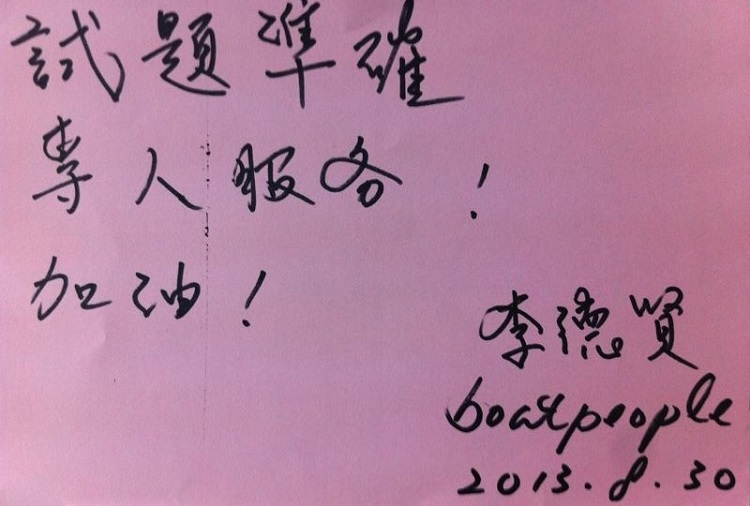 試題準確
專人服务!
加油!
李德贤
boatpeople
2013.8.30